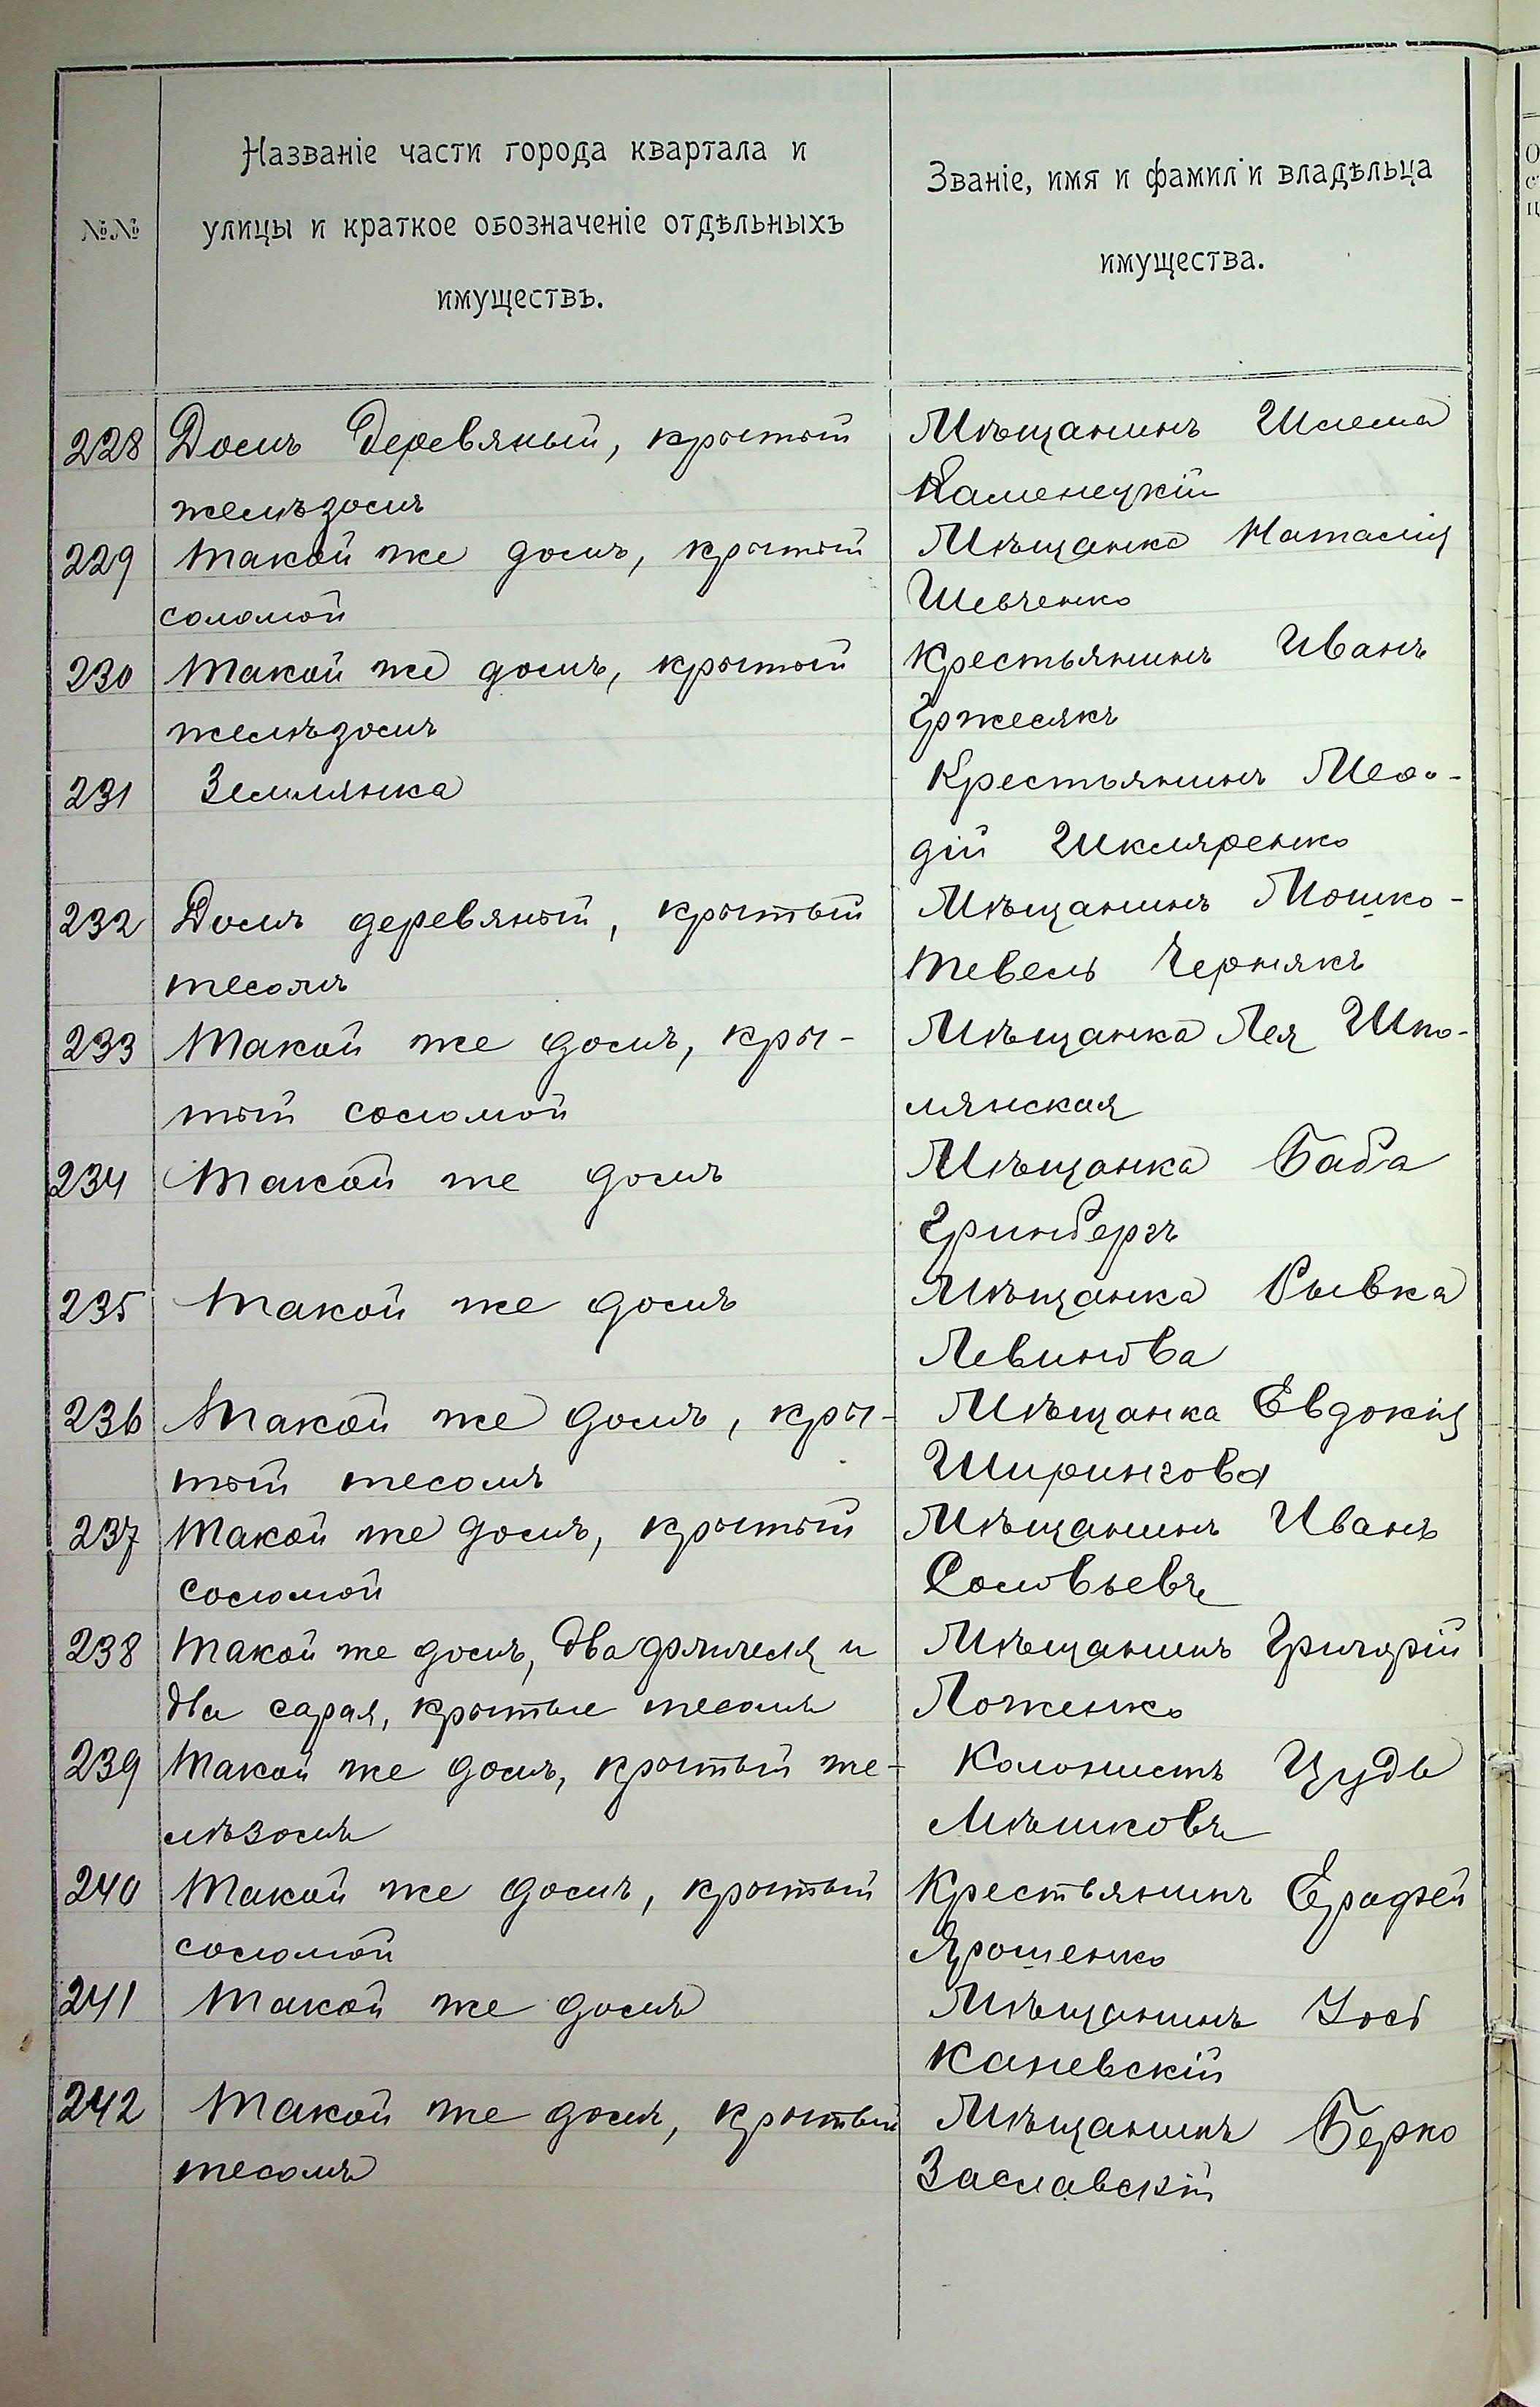 №№
Названіе части города квартала и
улицы и краткое обозначеніе отдѣльныхъ
имуществъ.
Званіе, имя и фамиліи владѣльца
имущества.
228 Домъ деревяный, крытый
желѣзомъ
Мѣщанинъ Шлема
Каменецкій
229 Такой же домъ, крытый
соломой
Мѣщанка Наталія
Шевченко
230 Такой же домъ, крытый
желѣзомъ
Крестьянинъ Иванъ
Гржесякъ
231 Землянка
Крестьянинъ Меѳо-
дій Шкляренко
232 Домъ деревяный, крытый
тесомъ
Мѣщанинъ Мошко-
Тевель Чернякъ
233 Такой же домъ, кры-
тый соломой
Мѣщанка Лея Шпо-
лянская
234 Такой же домъ
Мѣщанка Баба
Гринбергъ
235 Такой же домъ
Мѣщанка Рывка
Левинова
236 Такой же домъ, кры-
тый тесомъ
Мѣщанка Евдокія
Ширингова
237 Такой же домъ, крытый
соломой
Мѣщанинъ Иванъ
Соловьевъ
238 Такой же домъ, два флигеля и
два сарая, крытые тесомъ
Мѣщанинъ Григорій
Ложенко
239 Такой же домъ, крытый же-
лѣзомъ
Колонистъ
Мѣшковъ
240 Такой же домъ, крытый
соломой
Крестьянинъ Ерофей
Ярошенко
241 Такой же домъ
Мѣщанинъ
Каневскій
242 Такой же домъ, крытый
тесомъ
Мѣщанинъ Берко
Заславскій